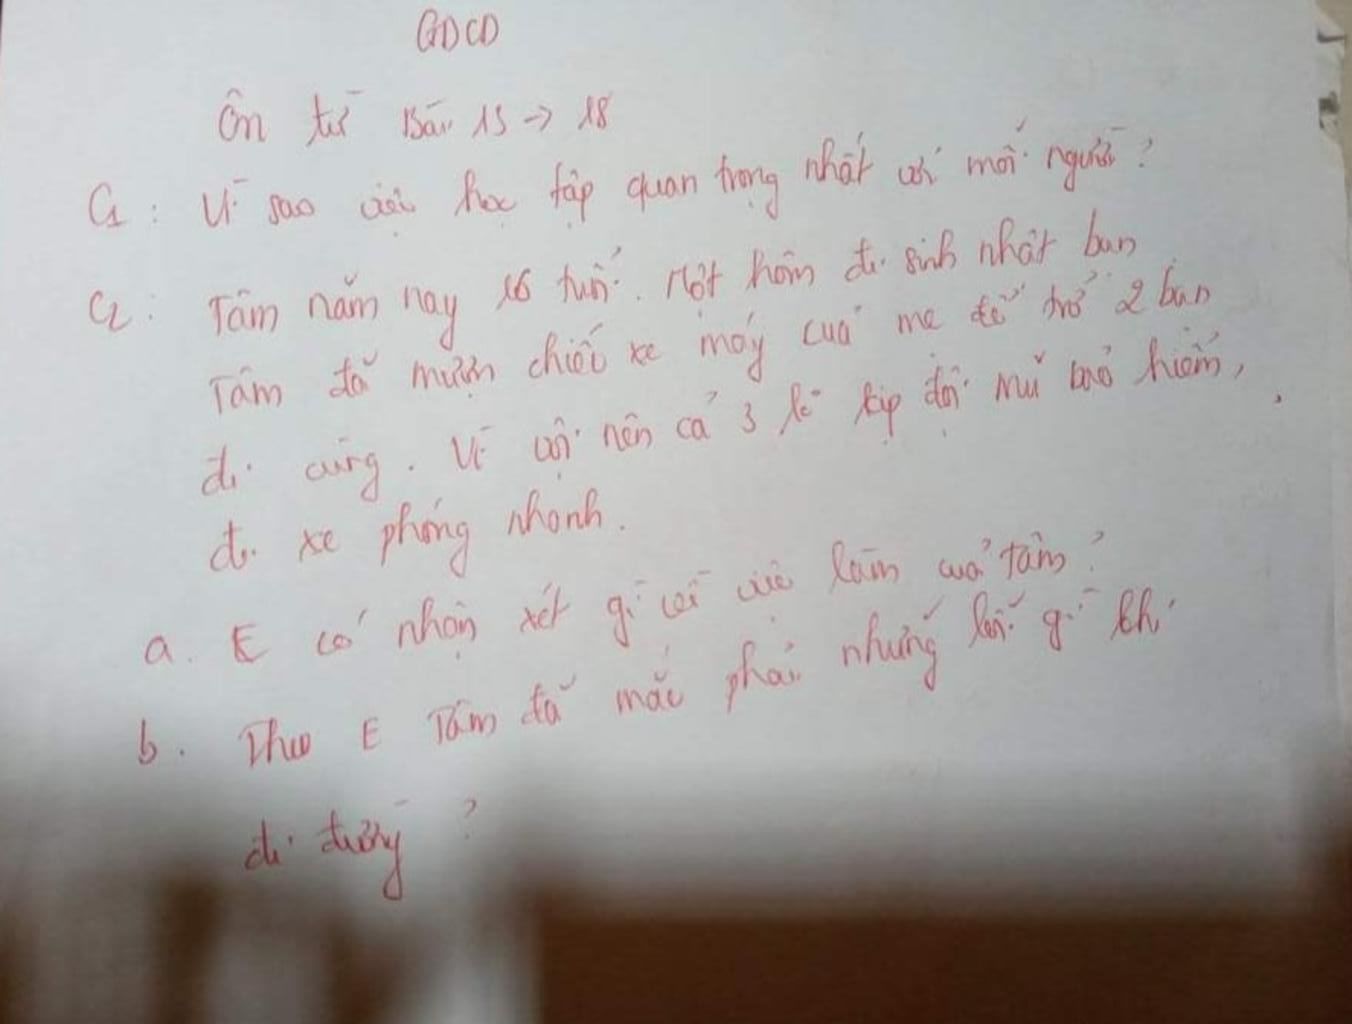 GDCD
Ôn từ Bài 15 → 18
C1: Vì sao việc học tập quan trọng nhất với mỗi người?
C2: Tâm năm nay 16 tuổi. Một hôm đi sinh nhật bạn
Tâm đã mượn chiếc xe máy của mẹ để trở 2 bạn
đi cùng. Vì vội nên cả 3 kịp đội mũ bảo hiểm,
đi xe phóng nhanh.
a. E có nhận xét gì về việc làm của Tâm?
b. Theo E Tâm đã mắc phải những lỗi gì khi
đi đường?